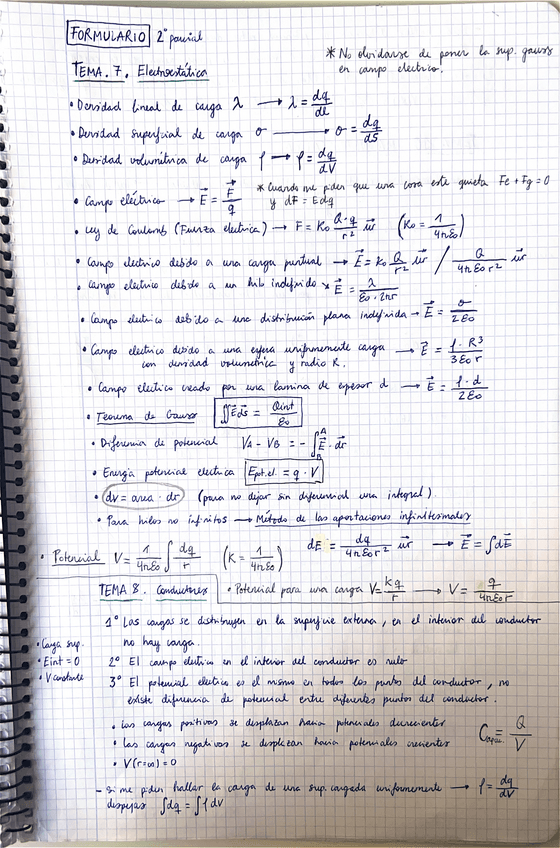 FORMULARIO 2º parcial
* No olvidarse de poner la sup. gauss
en campo electrico.
TEMA. 7. Electroestática
• Densidad lineal de carga λ → λ = dq/dl
• Densidad superficial de carga σ → σ = dq/dS
• Densidad volumétrica de carga ρ → ρ = dq/dV
• Campo eléctrico → E⃗ = F⃗/q
* Cuando me piden que una cosa este quieta Fe + Fg = 0
y dF = E dq
• Ley de Coulomb (Fuerza electrica) → F = K₀ Q·q/r² u⃗r (K₀ = 1/4πε₀)
• Campo electrico debido a una carga puntual → E⃗ = K₀ Q/r² u⃗r / Q/4πε₀r² u⃗r
• Campo electrico debido a un hilo indefinido → E⃗ = λ/ε₀·2πr
• Campo electrico debido a una distribución plana indefinida → E⃗ = σ/2ε₀
• Campo electrico debido a una esfera uniformemente carga
con densidad volumetrica y radio R. → E⃗ = ρ·R³/3ε₀r
• Campo electico creado por una lamina de espesor d → E⃗ = ρ·d/2ε₀
• Teorema de Gauss ∯E⃗ds = Qint/ε₀
• Diferencia de potencial VA - VB = - ∫_B^A E⃗·dr⃗
• Energia potencial electrica Epot.el. = q·V
• dv = area·dr (para no dejar sin diferencial una integral)
• Para hilos no infinitos → Método de las aportaciones infinitesimales
dE = dq/4πε₀r² u⃗r → E⃗ = ∫dE⃗
• Potencial V = 1/4πε₀ ∫ dq/r (K = 1/4πε₀)
• Potencial para una carga V = kq/r → V = q/4πε₀r
TEMA 8. Conductores
1º Las cargas se distribuyen en la superficie externa, en el interior del conductor
no hay carga.
• Carga sup.
• Eint = 0
• V constante
2º El campo electrico en el interior del conductor es nulo
3º El potencial electico es el mismo en todos los puntos del conductor, no
existe diferencia de potencial entre diferentes puntos del conductor.
• Las cargas positivas se desplazan hacia potenciales decrecientes
• Las cargas negativas se desplazan hacia potenciales crecientes
• V(r=∞) = 0
Capac. = Q/V
- Si me piden hallar la carga de una sup. cargada uniformemente → ρ = dq/dV
despejas ∫dq = ∫ρ dV